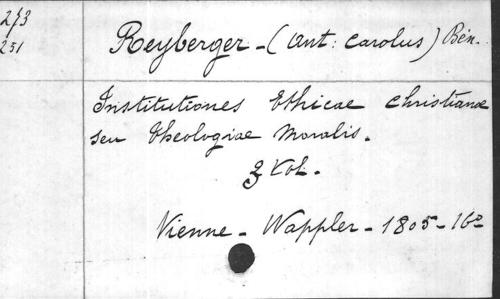 273
251
Reyberger - (Ant: Carolus) Bén.
Institutiones Ethicae Christianae
seu theologiae Moralis.
3 Vol.
Vienne - Wappler - 1805 - 16°